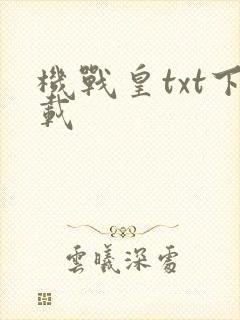 機戰皇txt下
載
雲曦深處